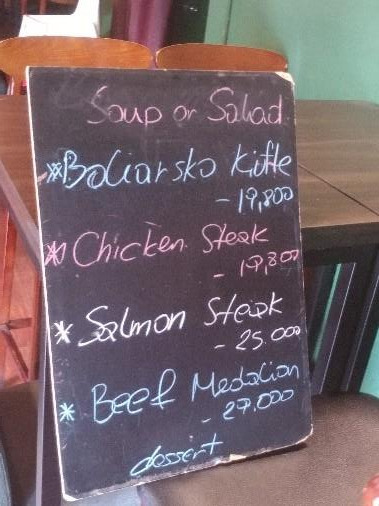 Soup or Salad
*Boliarsko Kiufte
- 19,800
* Chicken Steak
- 19,800
* Salmon Steak
- 25.000
* Beef Medalion
- 27.000
dessert